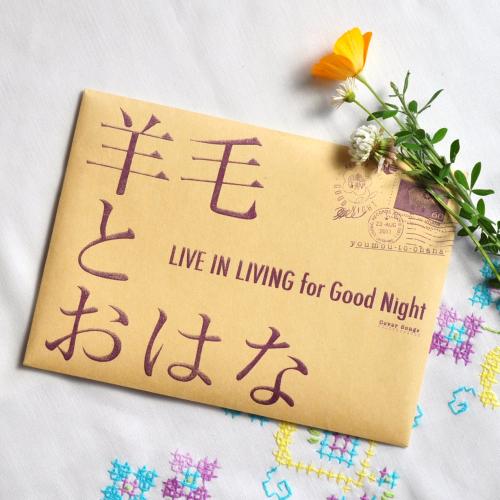 羊毛
と
おはな
LIVE IN LIVING for Good Night
Cover Songs
youmou-to-ohana
23-AUG
2011
60